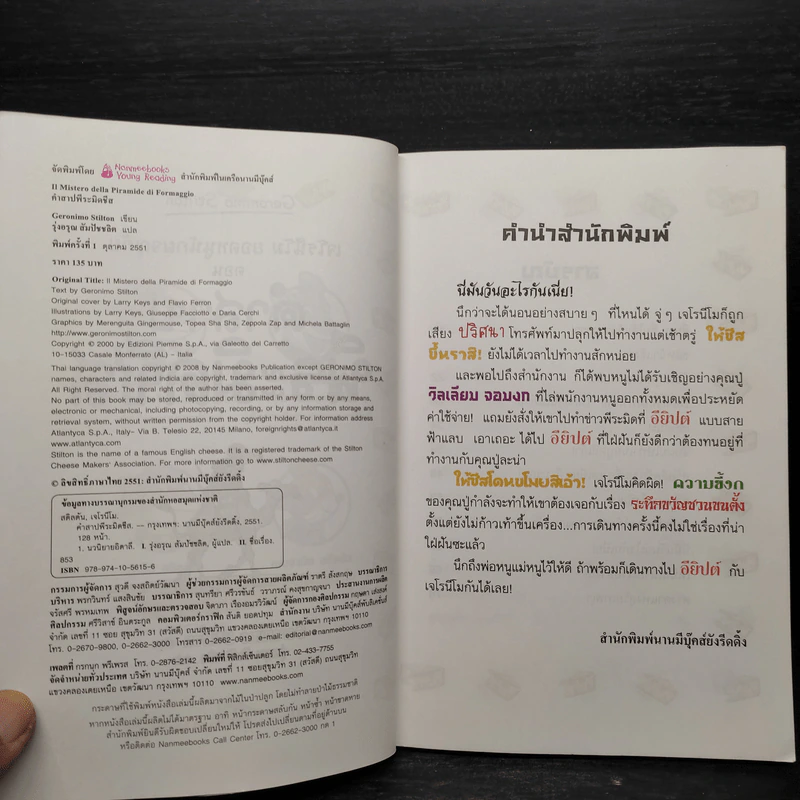 จัดพิมพ์โดย Nanmeebooks Young Reading สำนักพิมพ์ในเครือนานมีบุ๊คส์
Il Mistero della Piramide di Formaggio
คำสาปพีระมิดชีส
Geronimo Stilton เขียน
รุ่งอรุณ สัมปัชชลิต แปล
พิมพ์ครั้งที่ 1 ตุลาคม 2551
ราคา 135 บาท
Original Title: Il Mistero della Piramide di Formaggio
Text by Geronimo Stilton
Original cover by Larry Keys and Flavio Ferron
Illustrations by Larry Keys, Giuseppe Facciotto e Daria Cerchi
Graphics by Merenguita Gingermouse, Topea Sha Sha, Zeppola Zap and Michela Battaglin
http://www.geronimostilton.com
Copyright © 2000 by Edizioni Piemme S.p.A, via Galeotto del Carretto
10-15033 Casale Monferrato (AL) – Italia
Thai language translation copyright © 2008 by Nanmeebooks Publication except GERONIMO STILTON
names, characters and related indicia are copyright, trademark and exclusive license of Atlantyca S.p.A.
All Right Reserved. The moral right of the author has been asserted.
No part of this book may be stored, reproduced or transmitted in any form or by any means,
electronic or mechanical, including photocopying, recording, or by any information storage and
retrieval system, without written permission from the copyright holder. For information address
Atlantyca S.p.A., Italy– Via B. Telesio 22, 20145 Milano, foreignrights@atlantyca.it
www.atlantyca.com
Stilton is the name of a famous English cheese. It is a registered trademark of the Stilton
Cheese Makers' Association. For more information go to www.stiltoncheese.com
© ลิขสิทธิ์ภาษาไทย 2551: สำนักพิมพ์นานมีบุ๊คส์ยังรีดดิ้ง
ข้อมูลทางบรรณานุกรมของสำนักหอสมุดแห่งชาติ
สติลตัน, เจโรนีโม.
คำสาปพีระมิดชีส. — กรุงเทพฯ: นานมีบุ๊คส์ยังรีดดิ้ง, 2551.
128 หน้า.
1. นวนิยายอิตาลี. I. รุ่งอรุณ สัมปัชชลิต, ผู้แปล. II. ชื่อเรื่อง.
853
ISBN 978-974-10-5615-6
กรรมการผู้จัดการ สุวดี จงสถิตย์วัฒนา ผู้ช่วยกรรมการผู้จัดการสายผลิตภัณฑ์ ราตรี สังสกฤษ บรรณาธิการ
บริหาร พรกวินทร์ แสงสินชัย บรรณาธิการ สุนทรียา ศรีวรขันธ์ วราภรณ์ คงสุขกาญจนา ประสานงานการผลิต
จรัสศรี พรหมเทพ พิสูจน์อักษรและตรวจสอบ จิดาภา เรืองอมรวิวัฒน์ ผู้จัดการกองศิลปกรรม กฤษดา เส่งสงค์
ศิลปกรรม ศรีวิสาข์ อินตระกูล คอมพิวเตอร์กราฟิก สันติ ยอดปทุม สำนักงาน บริษัท นานมีบุ๊คส์พับลิเคชั่นส์
จำกัด เลขที่ 11 ซอย สุขุมวิท 31 (สวัสดี) ถนนสุขุมวิท แขวงคลองเตยเหนือ เขตวัฒนา กรุงเทพฯ 10110
โทร. 0-2670-9800, 0-2662-3000 โทรสาร 0-2662-0919 e-mail: editorial@nanmeebooks.com
เพลตที่ กรกนก พรีเพรส โทร. 0-2876-2142 พิมพ์ที่ ฟิสิกส์เซ็นเตอร์ โทร. 02-433-7755
จัดจำหน่ายทั่วประเทศ บริษัท นานมีบุ๊คส์ จำกัด เลขที่ 11 ซอยสุขุมวิท 31 (สวัสดี) ถนนสุขุมวิท
แขวงคลองเตยเหนือ เขตวัฒนา กรุงเทพฯ 10110 www.nanmeebooks.com
กระดาษที่ใช้พิมพ์หนังสือเล่มนี้ผลิตมาจากไม้ในป่าปลูก โดยไม่ทำลายป่าไม้ธรรมชาติ
หากหนังสือเล่มนี้ผลิตไม่ได้มาตรฐาน อาทิ หน้ากระดาษสลับกัน หน้าซ้ำ หน้าขาดหาย
สำนักพิมพ์ยินดีรับผิดชอบเปลี่ยนใหม่ให้ โปรดส่งไปเปลี่ยนตามที่อยู่ด้านบน
หรือติดต่อ Nanmeebooks Call Center โทร. 0-2662-3000 กด 1
คำนำสำนักพิมพ์
นี่มันวันอะไรกันเนี่ย!
นึกว่าจะได้นอนอย่างสบาย ๆ ที่ไหนได้ จู่ ๆ เจโรนีโมก็ถูก
เสียง ปริศนา โทรศัพท์มาปลุกให้ไปทำงานแต่เช้าตรู่ ให้ชีส
ขึ้นราสิ! ยังไม่ได้เวลาไปทำงานสักหน่อย
และพอไปถึงสำนักงาน ก็ได้พบหนูไม่ได้รับเชิญอย่างคุณปู่
วิลเลียม จอมงก ที่ไล่พนักงานหนูออกทั้งหมดเพื่อประหยัด
ค่าใช้จ่าย! แถมยังสั่งให้เขาไปทำข่าวพีระมิดที่ อียิปต์ แบบสาย
ฟ้าแลบ เอาเถอะ ได้ไป อียิปต์ ที่ใฝ่ฝันก็ยังดีกว่าต้องทนอยู่ที่
ทำงานกับคุณปู่ละน่า
ให้ชีสโดนขโมยสิเอ้า! เจโรนีโมคิดผิด! ความขี้งก
ของคุณปู่กำลังจะทำให้เขาต้องเจอกับเรื่อง ระทึกขวัญชวนขนตั้ง
ตั้งแต่ยังไม่ก้าวเท้าขึ้นเครื่อง...การเดินทางครั้งนี้คงไม่ใช่เรื่องที่น่า
ใฝ่ฝันซะแล้ว
นึกถึงพ่อหนูแม่หนูไว้ให้ดี ถ้าพร้อมก็เดินทางไป อียิปต์ กับ
เจโรนีโมกันได้เลย!
สำนักพิมพ์นานมีบุ๊คส์ยังรีดดิ้ง